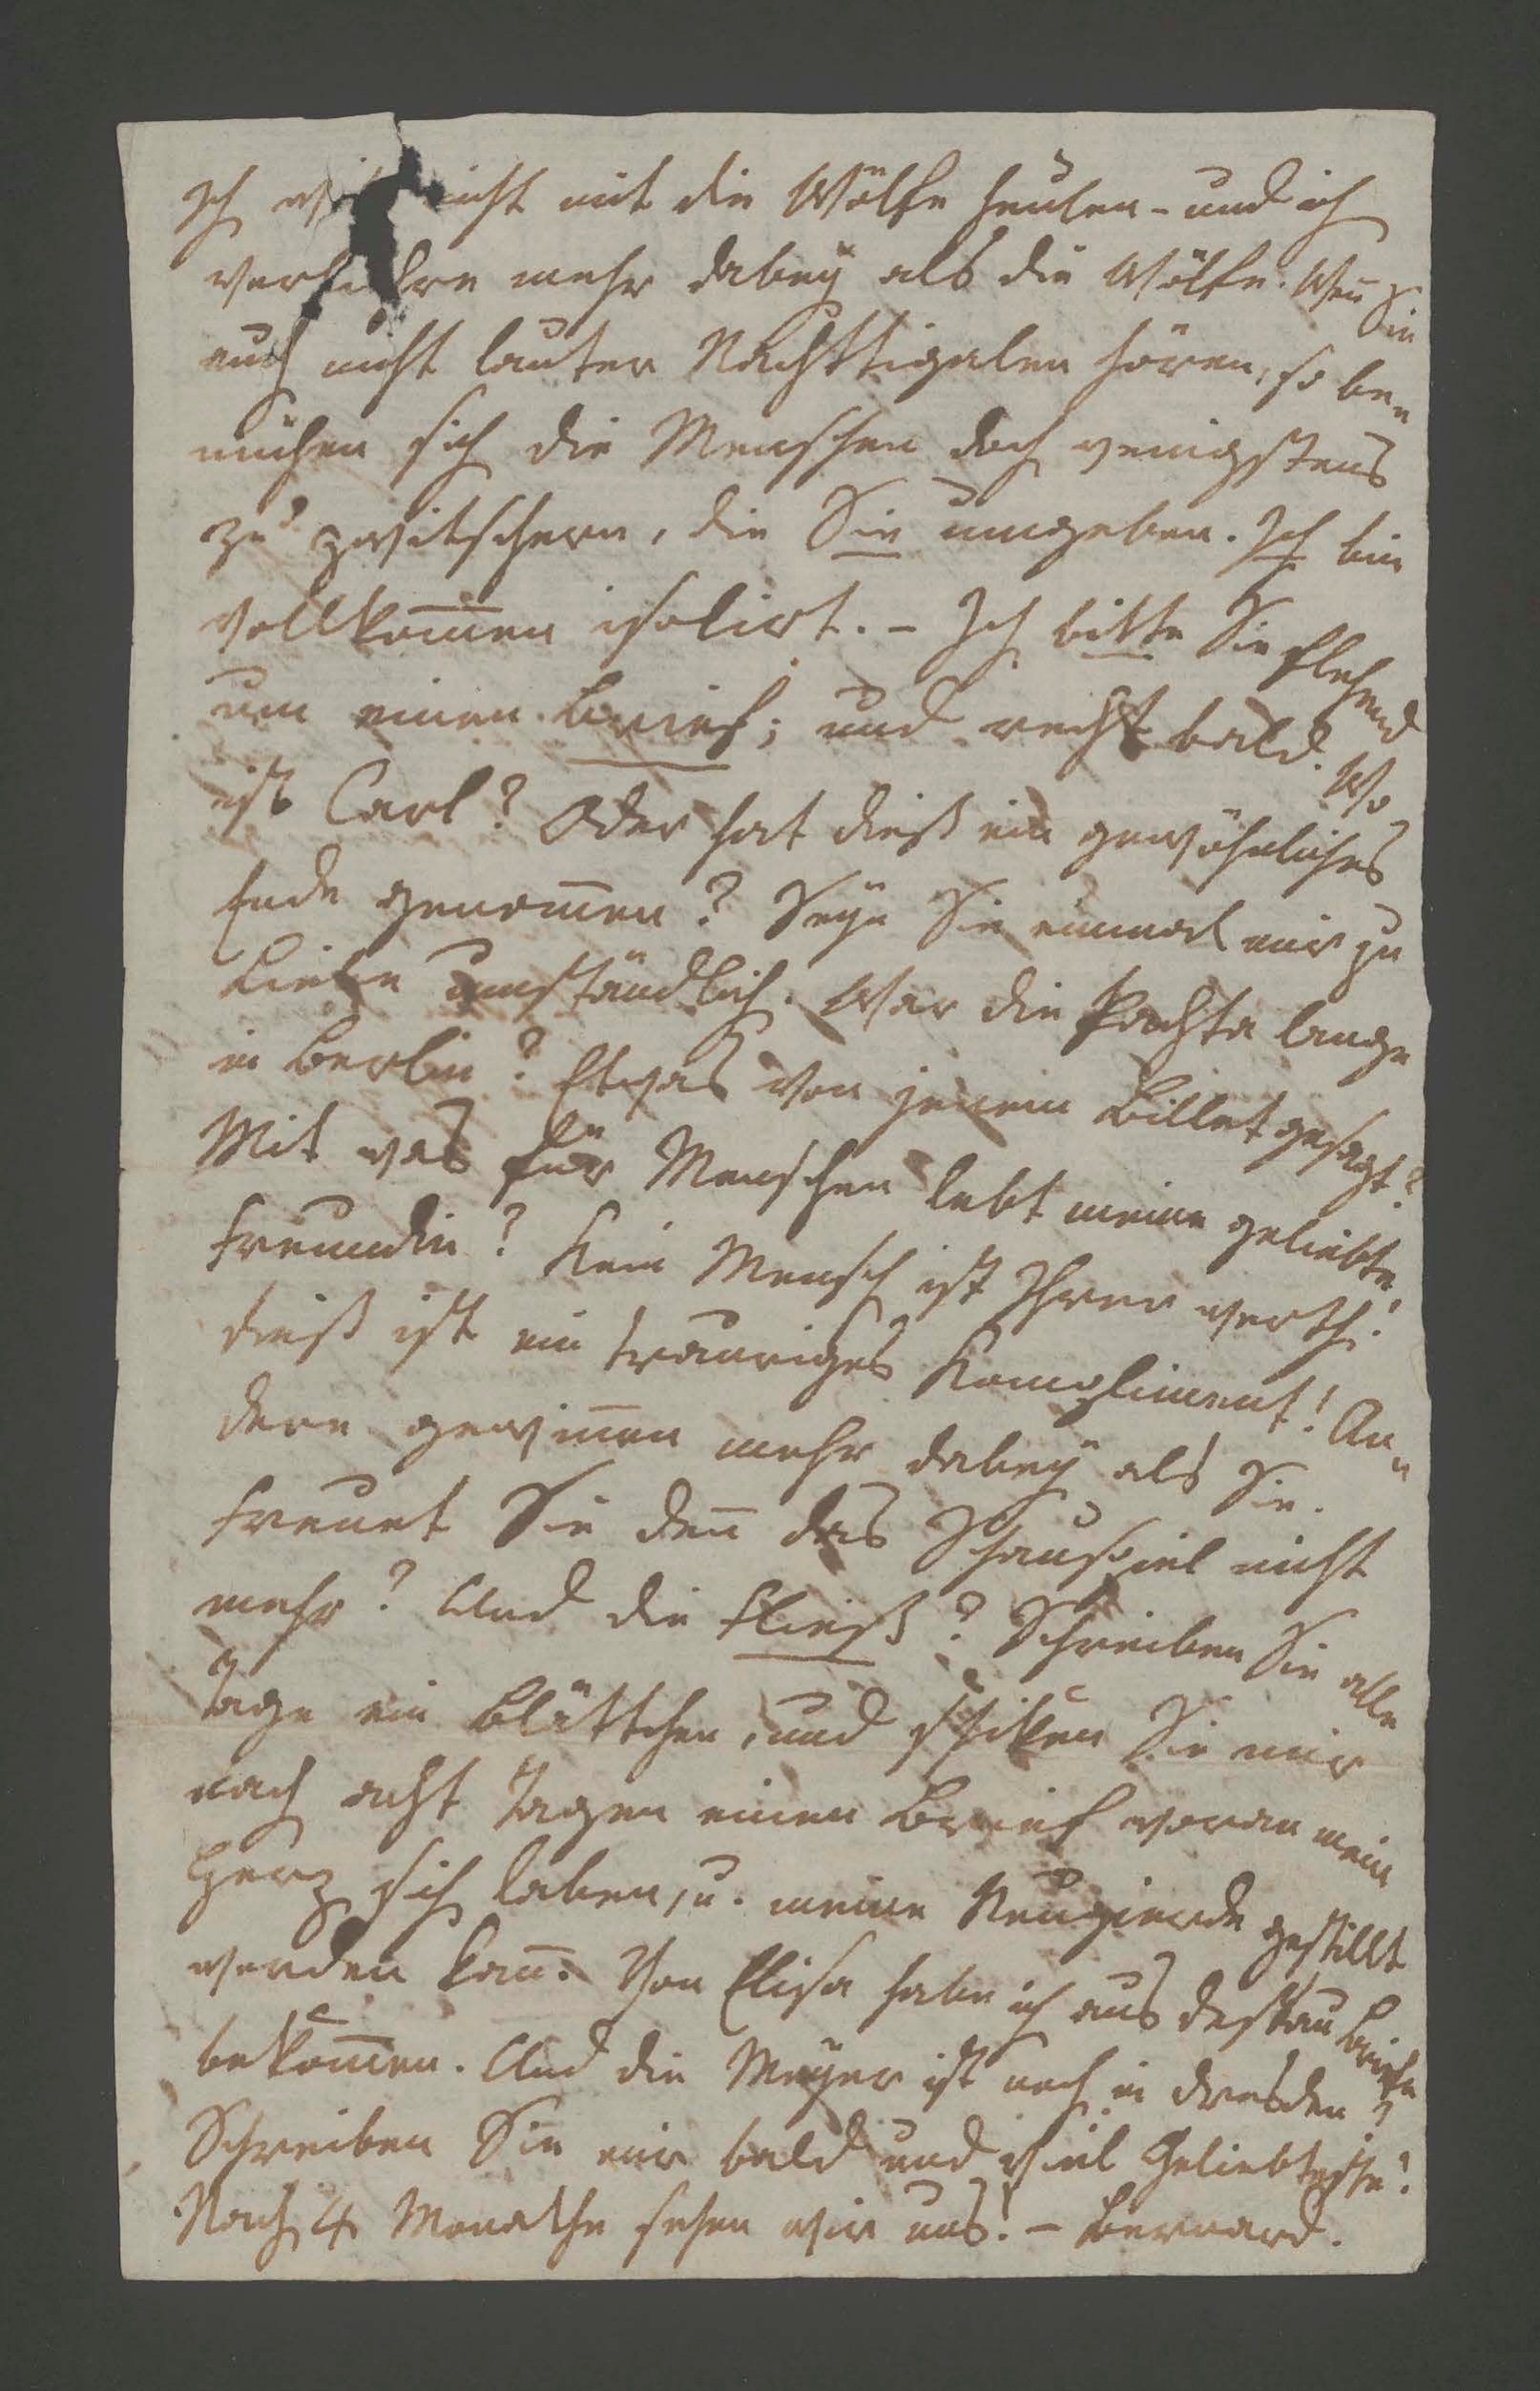 Ich will nicht mit die Wölfe heulen – und ich
verliehre mehr dabeÿ als die Wölfe. Weñ Sie
auch nicht lauter Nachttigalen hören, so be=
mühen sich die Menschen doch wenigstens
zu zwitschern, die Sie umgeben. Ich bin
vollkom̄en isolirt. – Ich bitte Sie flehend
um einen Brief; und recht bald. Wo
ist Carl? Oder hat dieß ein gewöhnliches
Ende genom̄en? Seÿn Sie einmal mir zu
Liebe umständlich. War die Pachta lange
in Berlin? Etwas von jenem Billet gesagt?
Mit was für Menschen lebt meine geliebte
Freundin? Kein Mensch ist Ihrer werth!
dieß ist ein trauriges Kompliment! An=
dere gewiñen mehr dabeÿ als Sie.
Freuet Sie deñ das Schauspiel nicht
mehr? Und die Fließ? Schreiben Sie alle
Tage ein Blättchen, und schiken Sie mir
nach acht Tagen einen Brief woran mein
Herz sich laben, u. meine Neugierde gestillt
werden kañ. Von Elisa habe ich aus Dessau Briefe
bekom̄en. Und die Meÿer ist noch in Dresden?
Schreiben Sie mir bald und viel Geliebteste!
Nach 4 Monathe sehen wir uns! – Bernard.